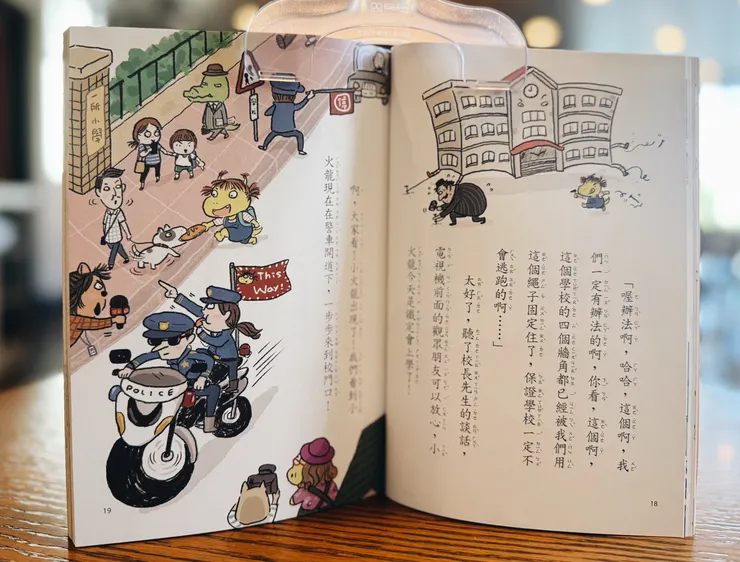 「喔辦法啊，哈哈，這個啊，我
們一定有辦法的啊，你看，這個啊，
這個學校的四個牆角都已經被我們用
這個繩子固定住了，保證學校一定不
會逃跑的啊……」
太好了，聽了校長先生的談話，
電視機前面的觀眾朋友可以放心，小
火龍今天是鐵定會上學了！
18
啊，大家看！小火龍出現了！我們看到小
火龍現在在警車開道下，一步步來到校門口！
停
This
Way!
POLICE
19